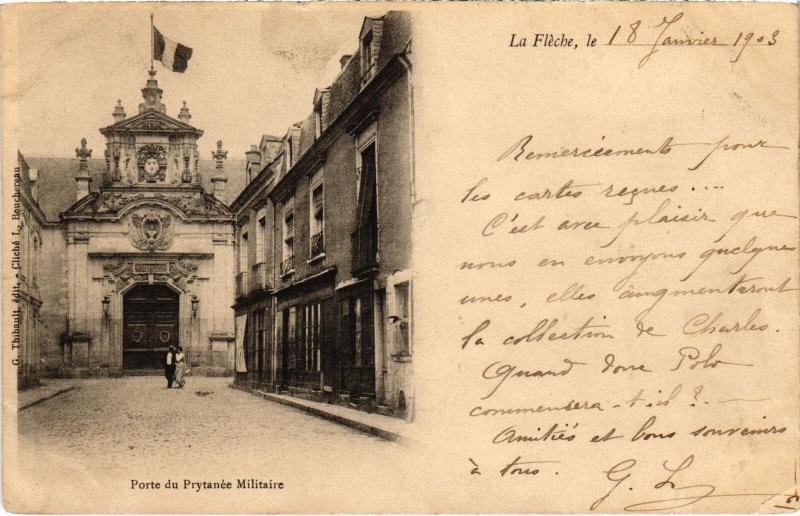 La Flèche, le 18 Janvier 1903
Remerciements pour
les cartes reçues ....
C'est avec plaisir que
nous en envoyons quelques
unes, elles augmenteront
la collection de Charles.
Quand donc Polo
commencera-t-il ? -
Amitiés et bons souvenirs
à tous. G. L
G. Thibault, édit. - Cliché L. Bouchereau
Porte du Prytanée Militaire